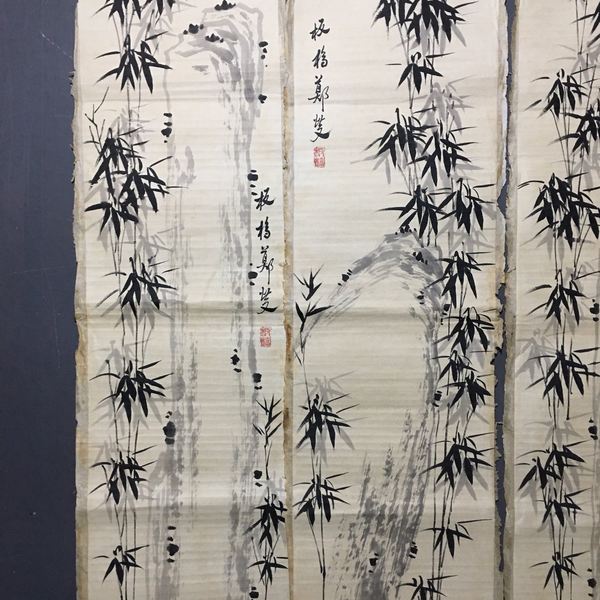 板橋鄭燮
板橋鄭燮